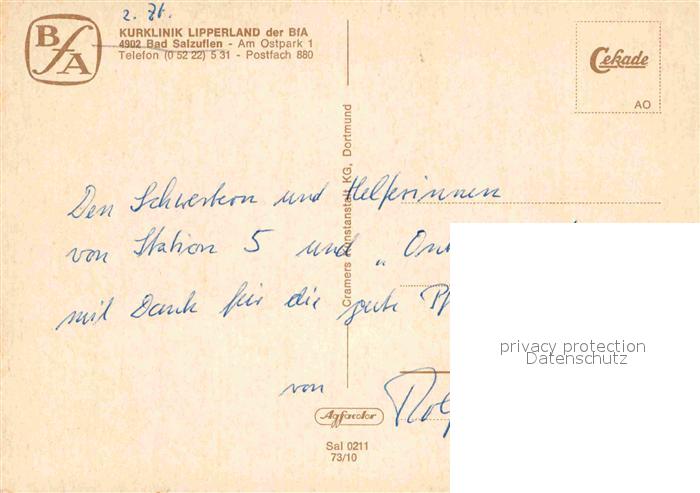 2. Zt.
BfA
KURKLINIK LIPPERLAND der BfA
4902 Bad Salzuflen - Am Ostpark 1
Telefon (0 52 22) 5 31 - Postfach 880
Cekade
AO
Cramers Kunstanstalt KG, Dortmund
Den Schwestern und Helferinnen
von Station 5 und „
mit Dank für die gute
von
Agfacolor
Sal 0211
73/10
privacy protection
Datenschutz